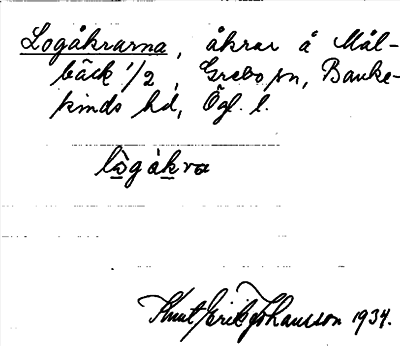 Logåkrarna, åkrar å Mål-
bäck 1/2, Grebo sn, Banke-
kinds hd, Ögl. l.
lògåkra
Knut Erik Johansson 1934.